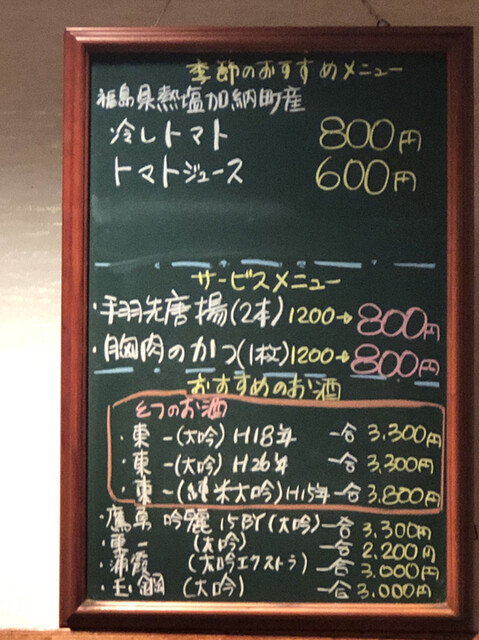 季節のおすすめメニュー
福島県熱塩加納町産
冷しトマト 800円
トマトジュース 600円
サービスメニュー
・手羽先唐揚(2本) 1200→800円
・胸肉のかつ(1枚) 1200→800円
おすすめのお酒
とつのお酒
・東一(大吟) H18年 一合 3,300円
・東一(大吟) H26年 一合 3,300円
・東一(純米大吟) H15年 一合 3,800円
・鷹勇 吟麗 15BY(大吟) 一合 3,300円
・東一 (大吟) 一合 2,200円
・蒲霞 (大吟エクストラ) 一合 3,000円
・玉鋼 (大吟) 一合 3,000円